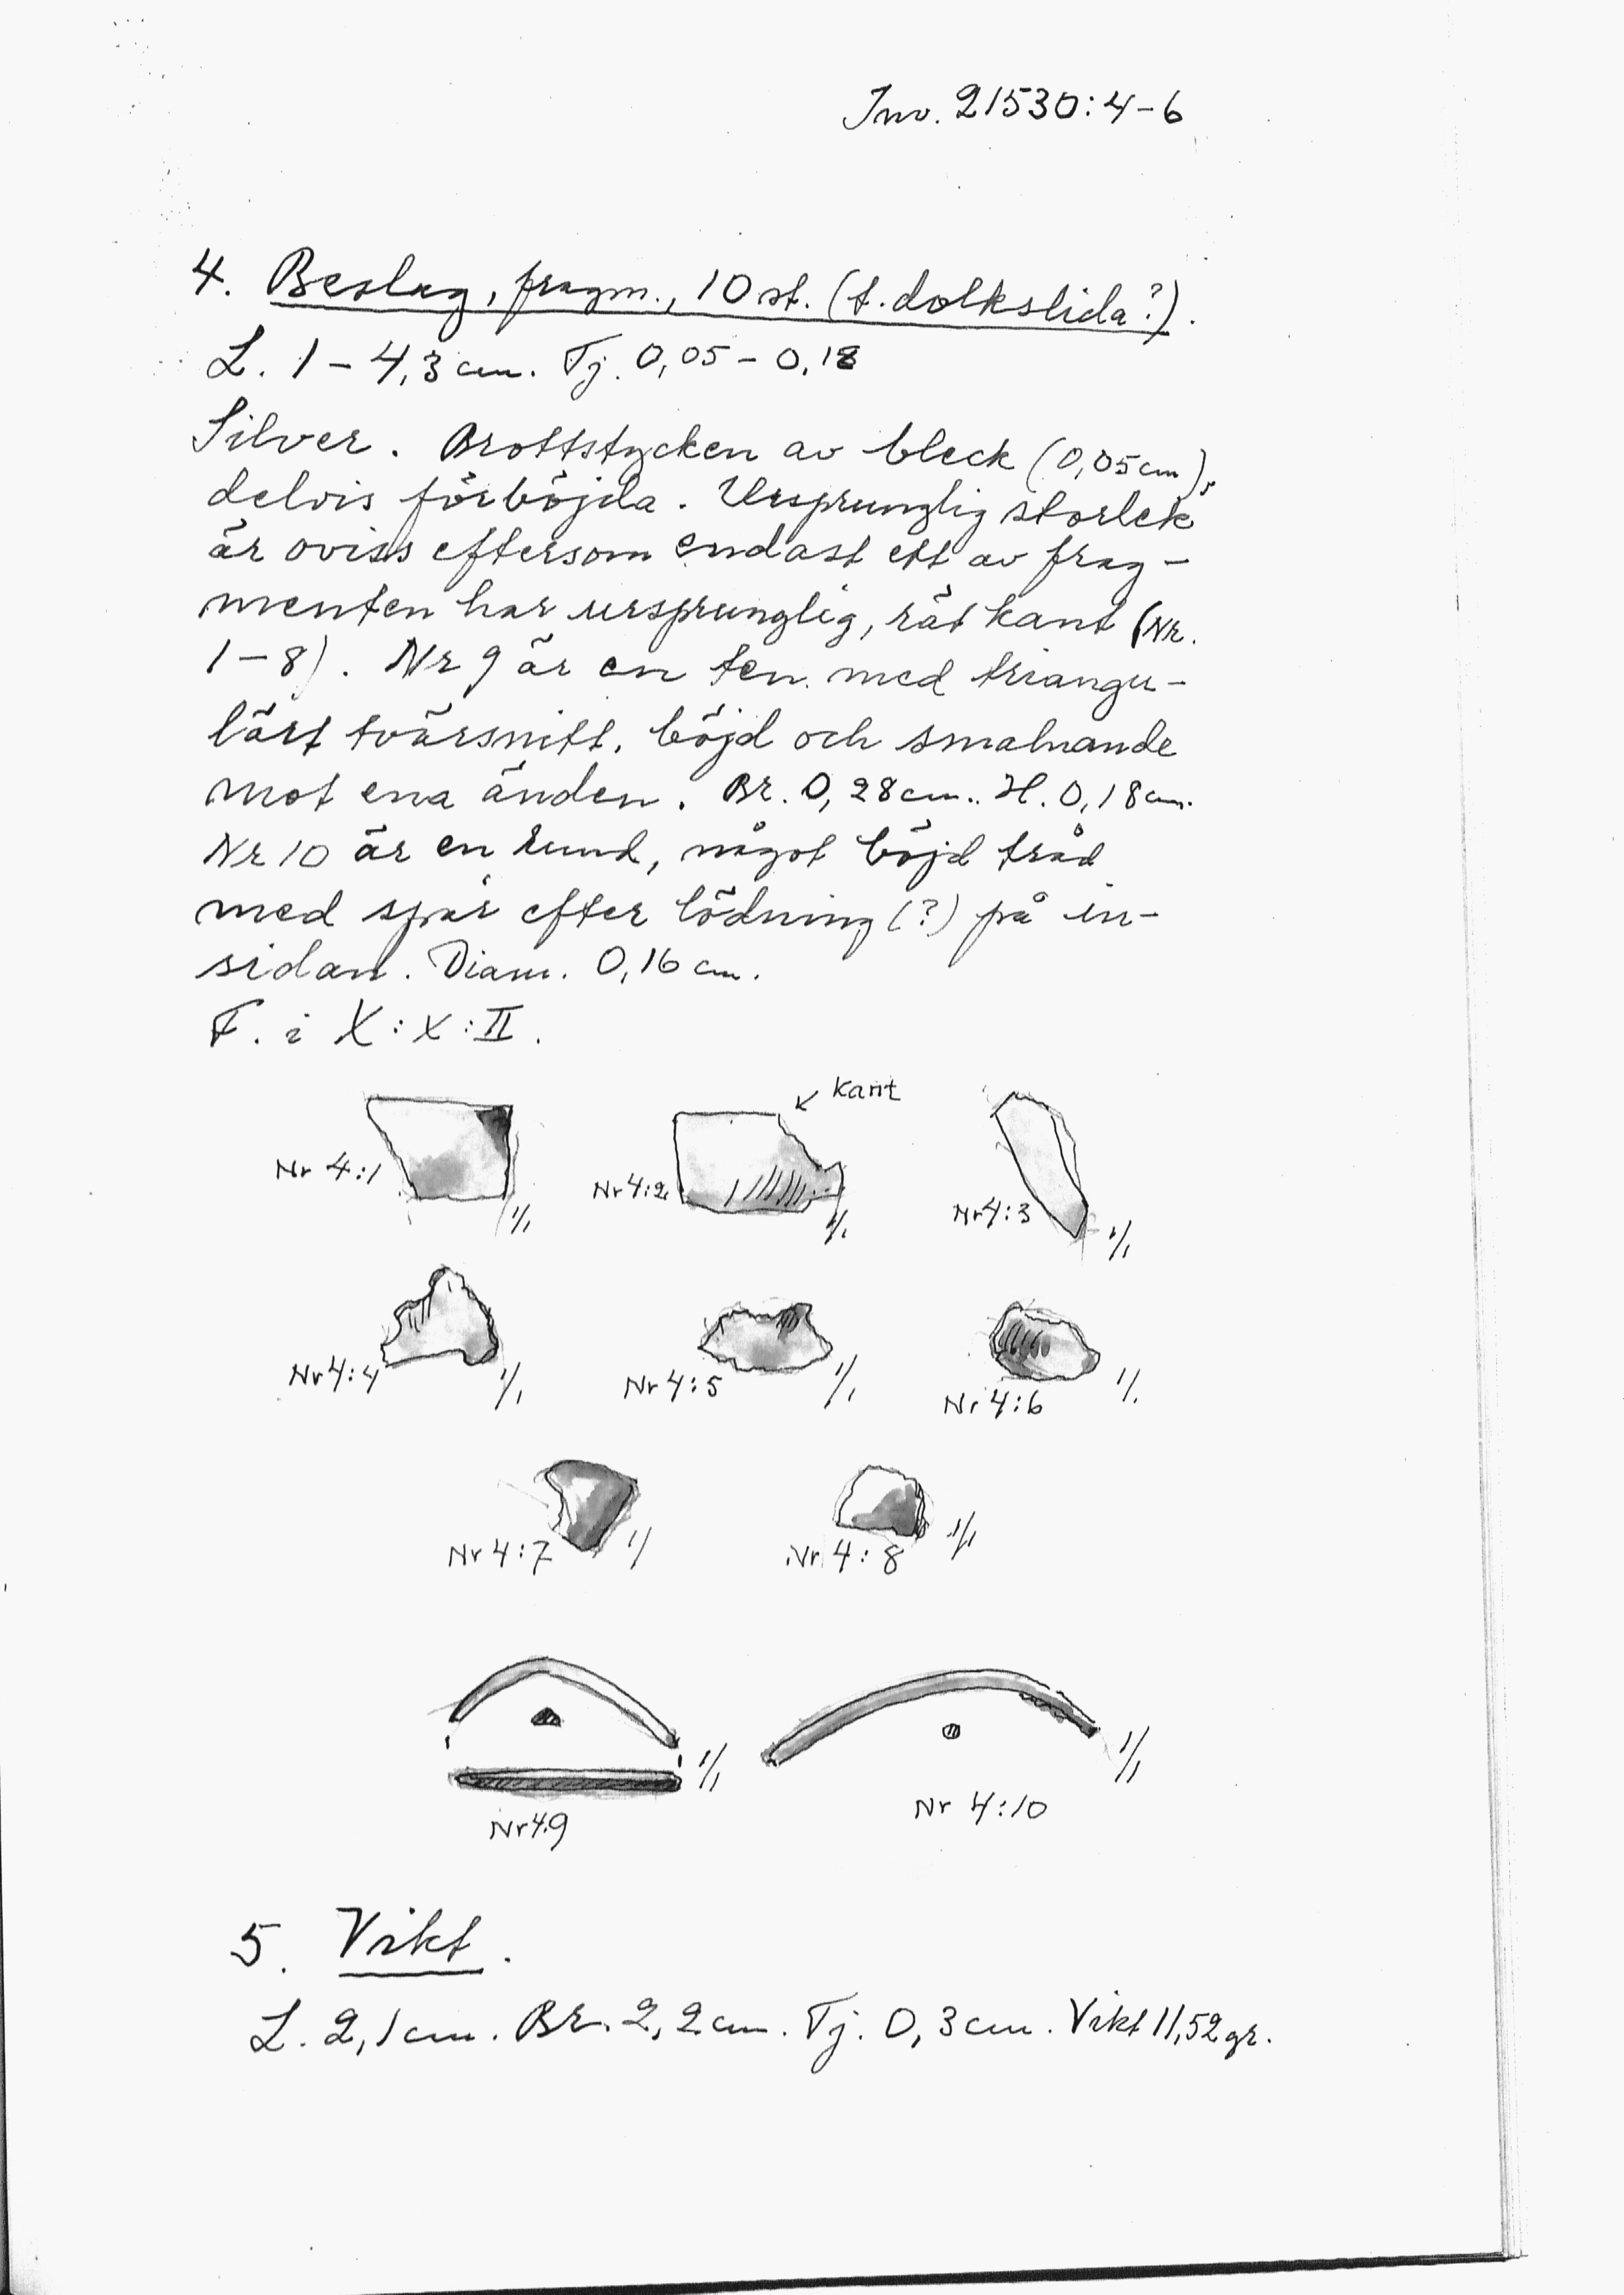 Inv. 21530:4-6
4. Beslag, fragm., 10 st. (t. dolkslida?).
L. 1 - 4,3 cm. Tj. 0,05 - 0,18
Silver. Brottstycken av bleck (0,05 cm),
delvis förböjda. Ursprunglig storlek
är oviss eftersom endast ett av frag-
menten har ursprunglig, rät kant (Nr.
1-8). Nr 9 är en ten med triangu-
lärt tvärsnitt, böjd och smalnande
mot ena änden. Br. 0,28 cm. H. 0,18 cm.
Nr 10 är en rund, något böjd tråd
med spår efter lödning (?) på in-
sidan. Diam. 0,16 cm.
F. i X:x:II.
Kant
Nr 4:1 1/1
Nr 4:2 1/1
Nr 4:3 1/1
Nr 4:4 1/1
Nr 4:5 1/1
Nr 4:6 1/1
Nr 4:7 1/
Nr 4:8 1/1
1/1
1/1
Nr 4:9
Nr 4:10
5. Vikt.
L. 2,1 cm. Br. 2,2 cm. Tj. 0,3 cm. Vikt 11,52 gr.